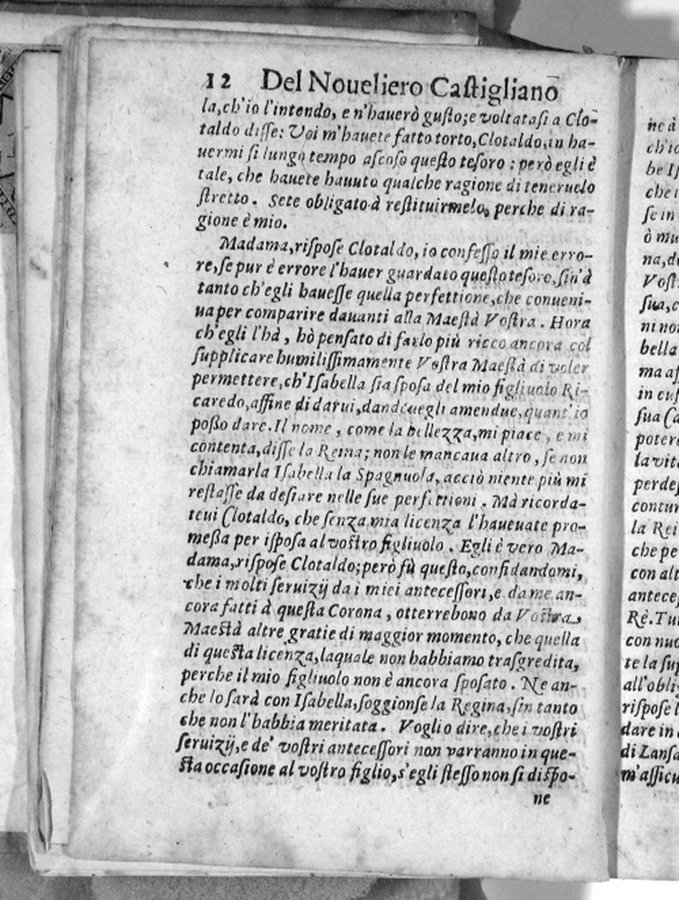 12 Del Noueliero Castigliano
la, ch'io l'intendo, e n'hauerò gusto; e voltatasi a Clo-
taldo disse: Voi m'hauete fatto torto, Clotaldo, in ha-
uermi sì lungo tempo ascoso questo tesoro; però egli è
tale, che hauete hauuto qualche ragione di teneruelo
stretto. Sete obligato à restituirmelo, perche di ra-
gione è mio.
Madama, rispose Clotaldo, io confesso il mie erro-
re, se pur è errore l'hauer guardato questo tesoro, sin'à
tanto ch'egli hauesse quella perfettione, che conueni-
ua per comparire dauanti alla Maestà Vostra. Hora
ch'egli l'hà, hò pensato di farlo più ricco ancora col
supplicare humilissimamente Vostra Maestà di voler
permettere, ch'Isabella sia sposa del mio figliuolo Ri-
caredo, affine di darui, dandouegli amendue, quant'io
posso dare. Il nome, come la bellezza, mi piace, e mi
contenta, disse la Reina; non le mancaua altro, se non
chiamarla Isabella la Spagnuola, acciò niente più mi
restasse da desiare nelle sue perfettioni. Mà ricorda-
teui Clotaldo, che senza mia licenza l'haueuate pro-
messa per isposa al vostro figliuolo. Egli è vero Ma-
dama, rispose Clotaldo; però fù questo, confidandomi,
che i molti seruizij da i miei antecessori, e da me an-
cora fatti à questa Corona, otterrebono da Vostra
Maestà altre gratie di maggior momento, che quella
di questa licenza, laquale non habbiamo trasgredita,
perche il mio figliuolo non è ancora sposato. Ne an-
che lo sarà con Isabella, soggionse la Regina, sin tanto
che non l'habbia meritata. Voglio dire, che i vostri
seruizij, e de' vostri antecessori non varranno in que-
sta occasione al vostro figlio, s'egli stesso non si dispo-
ne